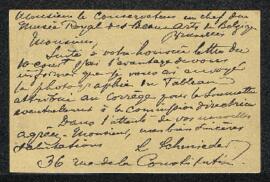 Monsieur le Conservateur en chef du
Musée Royal des Beaux Arts de Belgique
Bruxelles
Monsieur,
Suite à votre honorée lettre du
10 court j'ai l'avantage de vous
informer que je vous ai envoyé
la photographie du Tableau
attribué au Corrège pour la soumettre
éventuellement à la Commission directrice
Dans l'attente de vos nouvelles
agréez Monsieur, mes bien sincères
salutations
L. Schmieder
36 rue de la Consolation